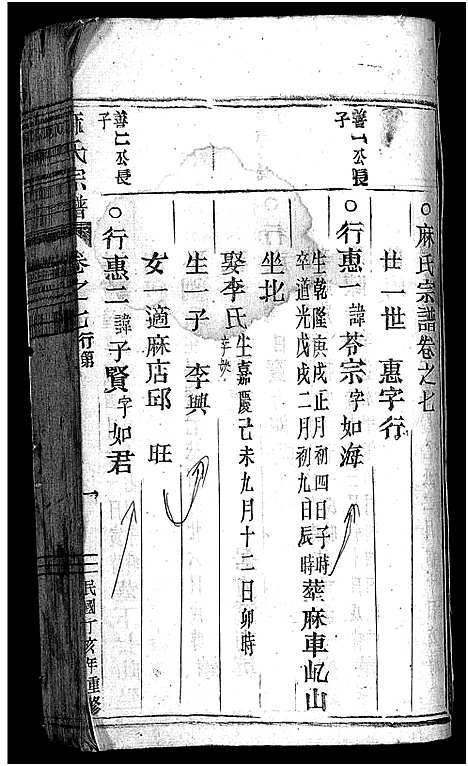 ○麻氏宗譜卷之七
廿一世 惠字行
善一公長子
○行惠一諱苓宗字如海
生乾隆庚戌正月初四日子時
卒道光戊戌二月初九日辰時
葬麻車屹山
坐北
娶李氏生嘉慶己未九月十二日卯時
卒缺
生一子 李興
女一適麻店邱 旺
善二公長子
○行惠二諱子賢字如君
麻氏宗譜 卷之七 行第 一 民國丁亥年重修